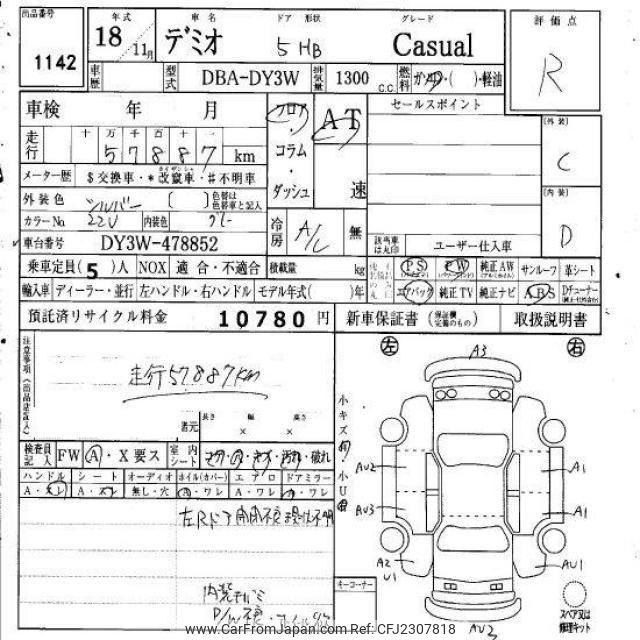 出品番号
1142
年式
18 / 11月
車名
デミオ
ドア 形状
5 HB
グレード
Casual
評価点
R
車歴
型式
DBA-DY3W
排気量
1300 C.C.
燃料
ガソリン・( )・軽油
車検 年 月
走行
十 万 千 百 十 一
5 7 8 8 7 km
メーター歴
$ 交換車・* 改竄車・# 不明車
外装色
シルバー
( )
色替は色替車と記入
カラーNo
22V
内装色
グレー
車台番号
DY3W-478852
フロア・コラム・ダッシュ
AT
速
冷房
A/C
無
セールスポイント
該当車は丸印
ユーザー仕入車
[外装]
C
[内装]
D
乗車定員(5)人 NOX 適合・不適合 積載量 kg
PS PW 純正AW サンルーフ 革シート
輸入車 ディーラー・並行 左ハンドル・右ハンドル モデル年式( )年
エアバック 純正TV 純正ナビ ABS Dチューナー
預託済リサイクル料金 10780 円
新車保証書 (保証欄完備のもの) 取扱説明書
注意事項(出品店記入)
走行57.887km
諸元
長さ × 幅 × 高さ
検査員記入
FW A・X要ス
室内シート
コゲ・穴・キズ・汚れ・破れ
ハンドル シート オーディオ ホイル(カバー) エアロ ドアミラー
A・スレ A・スレ 無し・穴 A・ワレ A・ワレ A・ワレ
左Rドア開閉不良
小キズ 小U
キーコーナー
左 右
A3
AU2
A1
AU3
A1
A2
U1
AU1
AU3
スペア又は修理キット
www.CarFromJapan.com - CFJ2307818